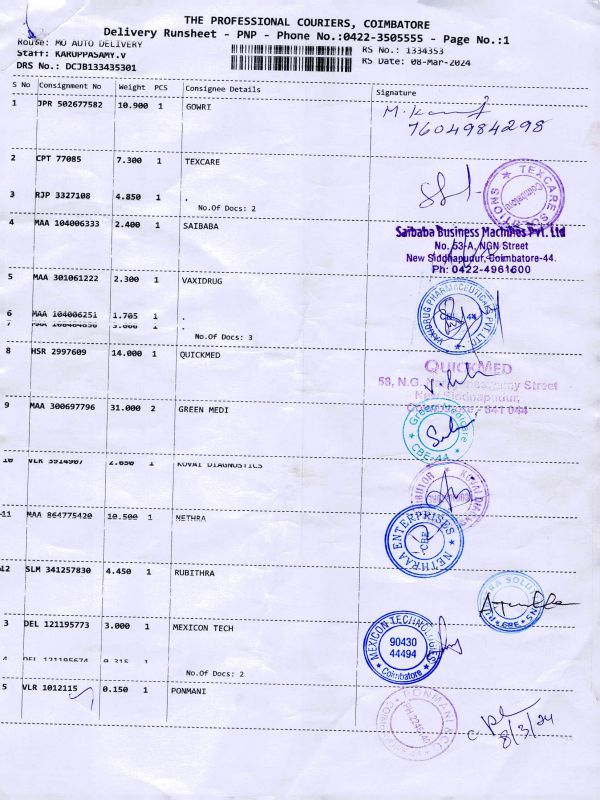 THE PROFESSIONAL COURIERS, COIMBATORE
Delivery Runsheet - PNP - Phone No.:0422-3505555 - Page No.:1
Route: MO AUTO DELIVERY RS No.: 1334353
Staff: KARUPPASAMY.V RS Date: 08-Mar-2024
DRS No.: DCJB133435301
S No Consignment No Weight PCS Consignee Details Signature
1 JPR 502677582 10.900 1 GOWRI
7604984298
2 CPT 77085 7.300 1 TEXCARE
TEXCARE SOLUTIONS Coimbatore
3 RJP 3327108 4.850 1 .
No.Of Docs: 2
4 MAA 104006333 2.400 1 SAIBABA
Saibaba Business Machines Pvt. Ltd
No. 53-A, NGN Street
New Siddhapudur, Coimbatore-44.
Ph: 0422-4961600
5 MAA 301061222 2.300 1 VAXIDRUG
VAXIDRUG PHARMACEUTICALS PVT LTD
6 MAA 104006251 1.705 1 .
7 MAA 1 .
No.Of Docs: 3
8 HSR 2997609 14.000 1 QUICKMED
QUICKMED
58, N.G. Street
New Siddhapudur,
Coimbatore - 641 044
9 MAA 300697796 31.000 2 GREEN MEDI
Green Medicare CBE-44
10 VLR 5914907 2.650 1 KOVAI DIAGNOSTICS
11 MAA 864775420 10.500 1 NETHRA
NETHRA ENTERPRISES CBE
12 SLM 341257830 4.450 1 RUBITHRA
3 DEL 121195773 3.000 1 MEXICON TECH
MEXICON TECHNOLOGIES
90430
44494
Coimbatore
4 DEL 121195674 0.316 1
No.Of Docs: 2
5 VLR 1012115 0.150 1 PONMANI
8/3/24